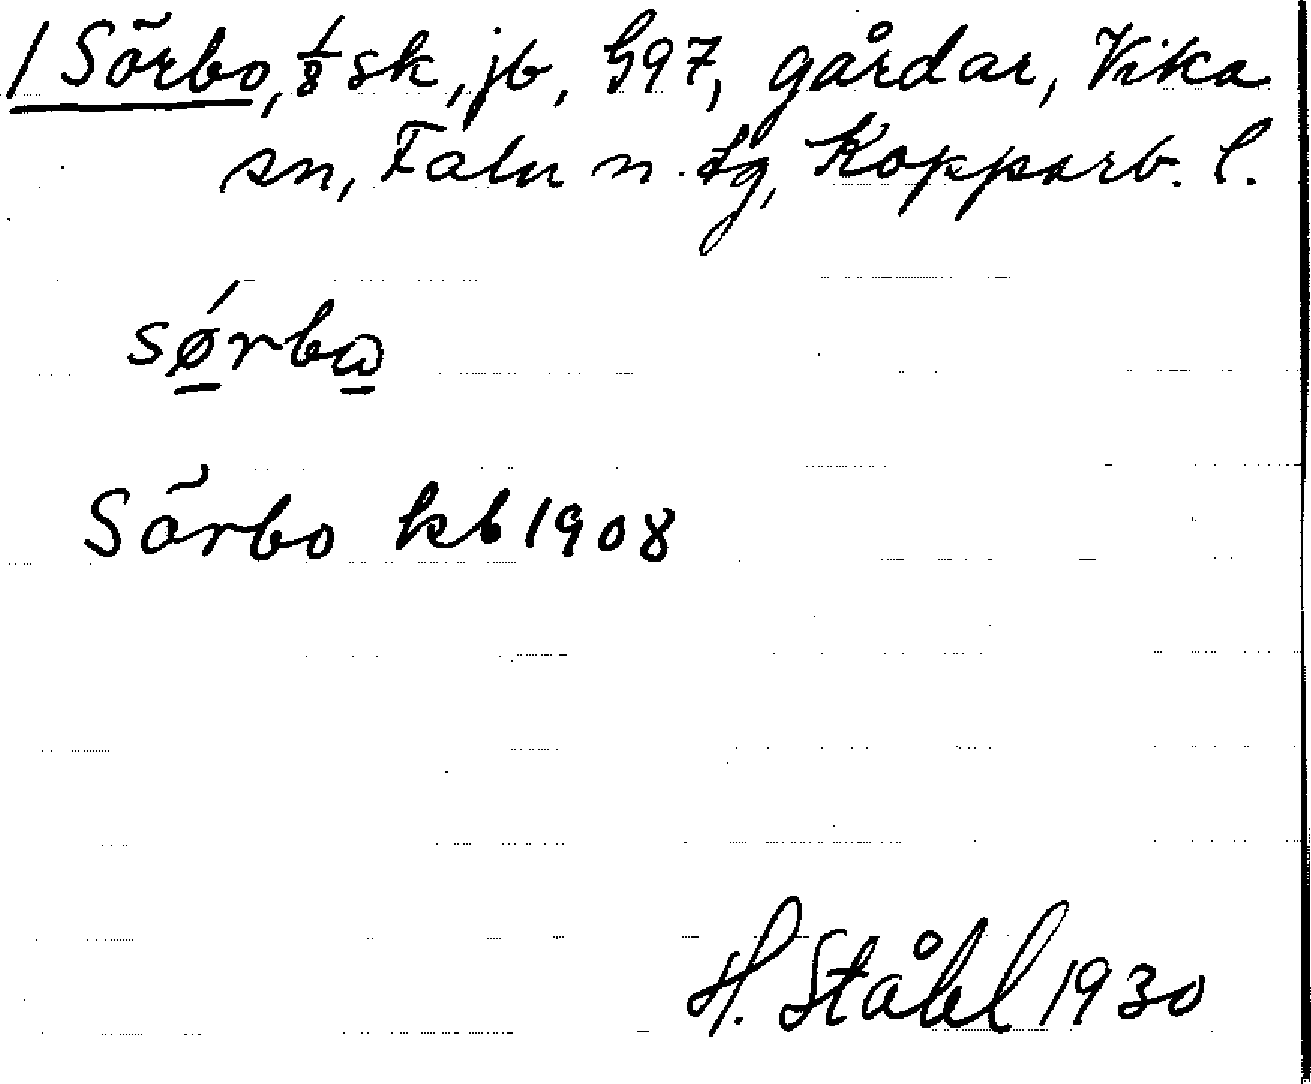 1 Sörbo, 1/8 sk, jb, G97, gårdar, Vika
sn, Falu n. tg, Kopparb. l.
sǿrbα
Sörbo kb 1908
H. Ståhl 1930